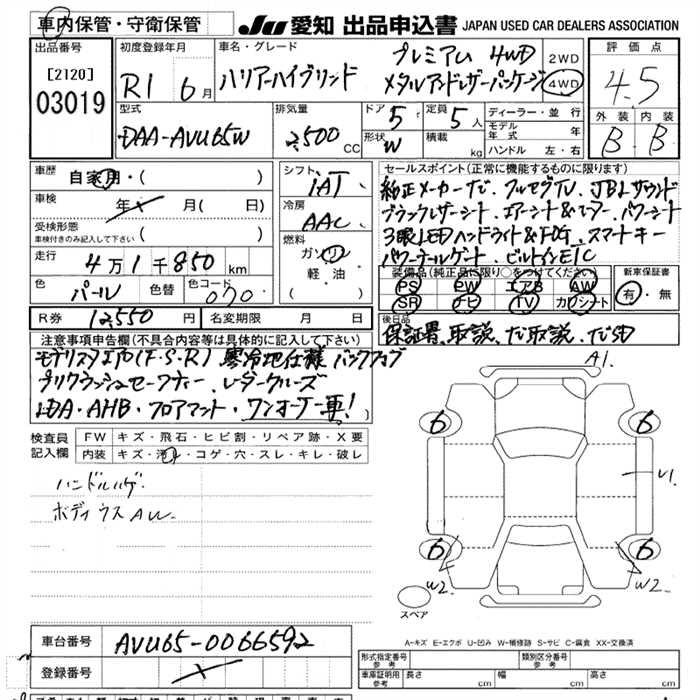 車内保管・守衛保管 JU 愛知 出品申込書 JAPAN USED CAR DEALERS ASSOCIATION
出品番号 初度登録年月 車名・グレード プレミアム 4WD 2WD 評価点
[2120] R1 6月 ハリアーハイブリッド メタルアンドレザーパッケージ 4WD 4.5
03019
型式 排気量 ドア 5 定員 5人 ディーラー・並行 外装 内装
DAA-AVU65W 2,500 CC 形状 W 積載 kg モデル年式 年 B・B
ハンドル 左・右
車歴 自家用・( ) シフト iAT セールスポイント(正常に機能するものに限ります)
車検 年 月( 日) 冷房 AAC 純正メーカーナビ、フルセグTV、JBLサウンド
受検形態 ブラックレザーシート、エアーシート&ヒーター、パワーシート
車検付きのみ記入して下さい 燃料 3眼LEDヘッドライト&FOG、スマートキー
走行 4万1千850km ガソリン 軽油 パワーゲート、ビルトインETC
装備品(純正品に限り○をつけてください) 新車保証書
色 パール 色替 色コード 070 PS PW エアB AW 有・無
SR ナビ TV カワシート
R券 12,550円 名変期限 月 日 後日品
保証書、取説、ナビ取説、ナビSD
注意事項申告欄(不具合内容等は具体的に記入して下さい)
モデリスタエアロ(F・S・R) 寒冷地仕様 バックフォグ A1.
プリクラッシュセーフティー、レーダークルーズ
LDA・AHB・フロアマット・ワンオーナー車!
検査員記入欄 FW キズ・飛石・ヒビ割・リペア跡・X要
内装 キズ・汚レ・コゲ・穴・スレ・キレ・破レ
6 6
ハンドルハゲ U1
ボディウスAW
6 6
W2 W2
スペア
車台番号 AVU65-0066592
A-キズ E-エクボ U-凹み W-補修跡 S-サビ C-腐食 XX-交換済
登録番号 形式指定番号 参考 類別区分番号 参考
車庫証明用 参考 長さ cm 幅 cm 高さ cm